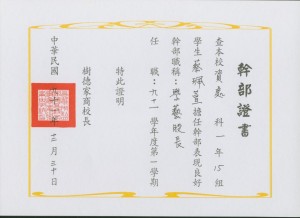 幹部證書
查本校資處 科一年15組
學生蔡珮萱擔任幹部表現良好
幹部職稱：學藝股長
任 職：九十一學年度第一學期
特此證明
樹德家商校長
中華民國 年 月三十日